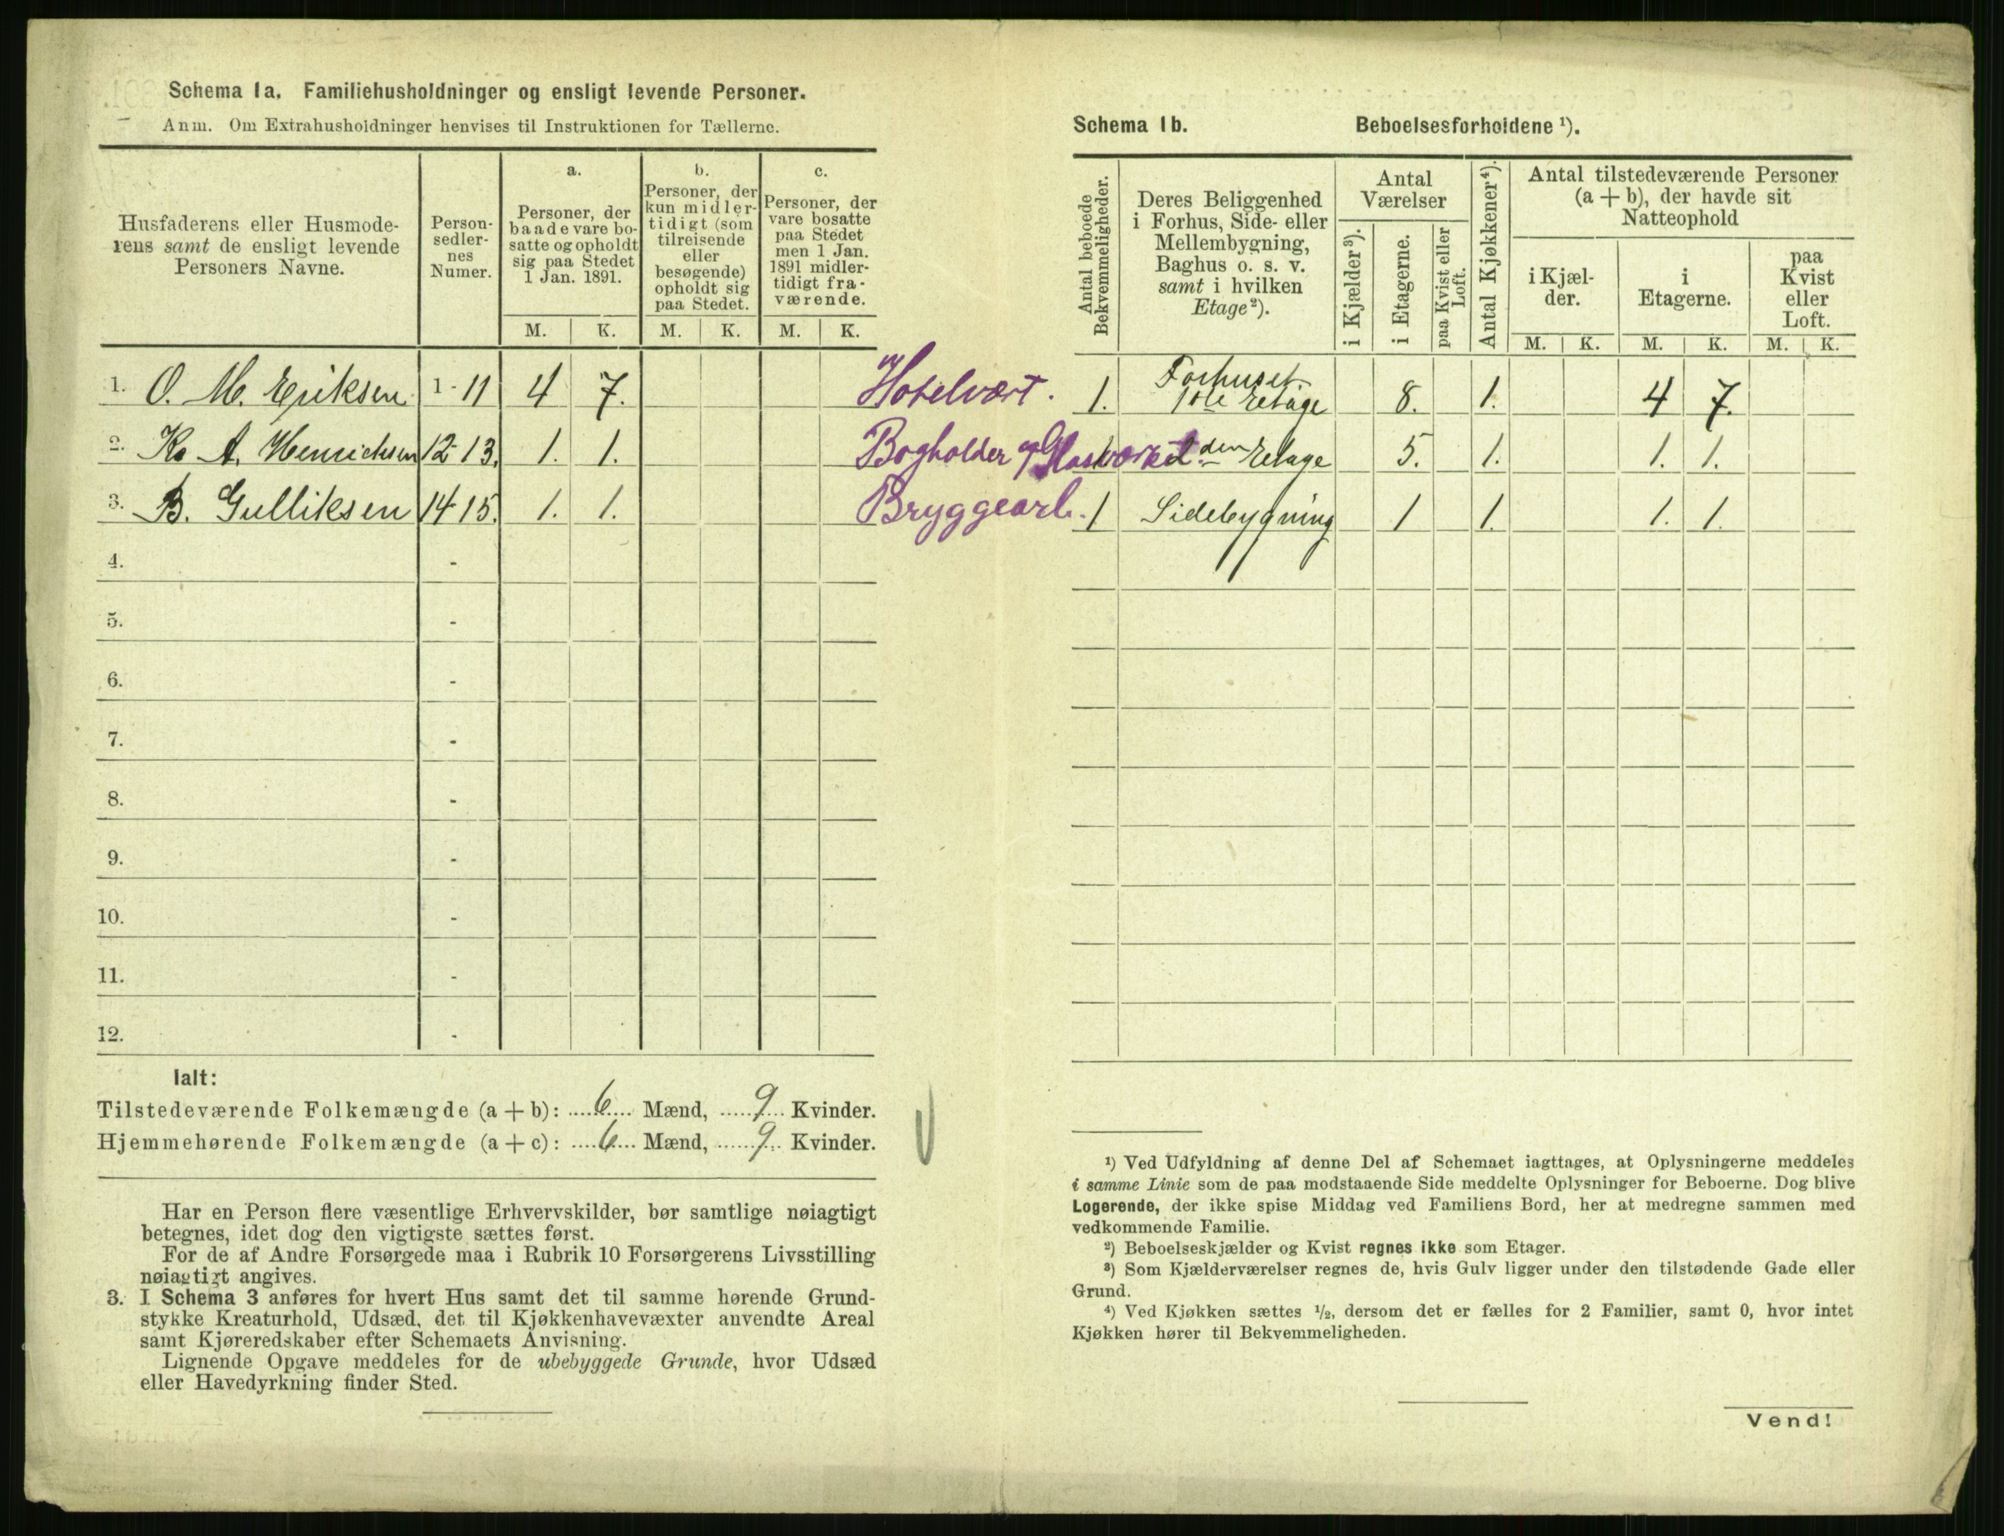 Schema 1a. Familiehusholdninger og ensligt levende Personer.
Anm. Om Extrahusholdninger henvises til Instruktionen for Tællerne.
Husfaderens eller Husmoderens samt de ensligt levende Personers Navne.
Personsedlernes Numer.
a. Personer, der baade vare bosatte og opholdt sig paa Stedet 1 Jan. 1891.
b. Personer, der kun midlertidigt (som tilreisende eller besøgende) opholdt sig paa Stedet.
c. Personer, der vare bosatte paa Stedet men 1 Jan. 1891 midlertidigt fraværende.
M. K. M. K. M. K.
1. O. M. Eriksen 1-11 4 7. Hotelvært.
2. K. A. Henrichsen 12-13. 1. 1. Bogholder og Glasværket
3. B. Gulliksen 14-15. 1. 1. Bryggearb.
4. -
5. -
6. -
7. -
8. -
9. -
10. -
11. -
12. -
Ialt:
Tilstedeværende Folkemængde (a + b): 6 Mænd, 9 Kvinder.
Hjemmehørende Folkemængde (a + c): 6 Mænd, 9 Kvinder.
Har en Person flere væsentlige Erhvervskilder, bør samtlige nøiagtigt
betegnes, idet dog den vigtigste sættes først.
For de af Andre Forsørgede maa i Rubrik 10 Forsørgerens Livsstilling
nøiagtigt angives.
3. I Schema 3 anføres for hvert Hus samt det til samme hørende Grund-
stykke Kreaturhold, Udsæd, det til Kjøkkenhavevæxter anvendte Areal
samt Kjøreredskaber efter Schemaets Anvisning.
Lignende Opgave meddeles for de ubebyggede Grunde, hvor Udsæd
eller Havedyrkning finder Sted.
Schema 1b. Beboelsesforholdene ¹).
Antal beboede Bekvemmeligheder.
Deres Beliggenhed i Forhus, Side- eller Mellembygning, Baghus o. s. v. samt i hvilken Etage²).
Antal Værelser
i Kjælder³).
i Etagerne.
paa Kvist eller Loft.
Antal Kjøkkener⁴).
Antal tilstedeværende Personer (a + b), der havde sit Natteophold
i Kjælder.
i Etagerne.
paa Kvist eller Loft.
M. K. M. K. M. K.
1. Forhuset 1ste Etage 8. 1. 4 7.
1 2den Etage 5. 1. 1. 1.
1 Sidebygning 1 1. 1. 1.
¹) Ved Udfyldning af denne Del af Schemaet iagttages, at Oplysningerne meddeles
i samme Linie som de paa modstaaende Side meddelte Oplysninger for Beboerne. Dog blive
Logerende, der ikke spise Middag ved Familiens Bord, her at medregne sammen med
vedkommende Familie.
²) Beboelseskjælder og Kvist regnes ikke som Etager.
³) Som Kjælderværelser regnes de, hvis Gulv ligger under den tilstødende Gade eller
Grund.
⁴) Ved Kjøkken sættes ½, dersom det er fælles for 2 Familier, samt 0, hvor intet
Kjøkken hører til Bekvemmeligheden.
Vend!